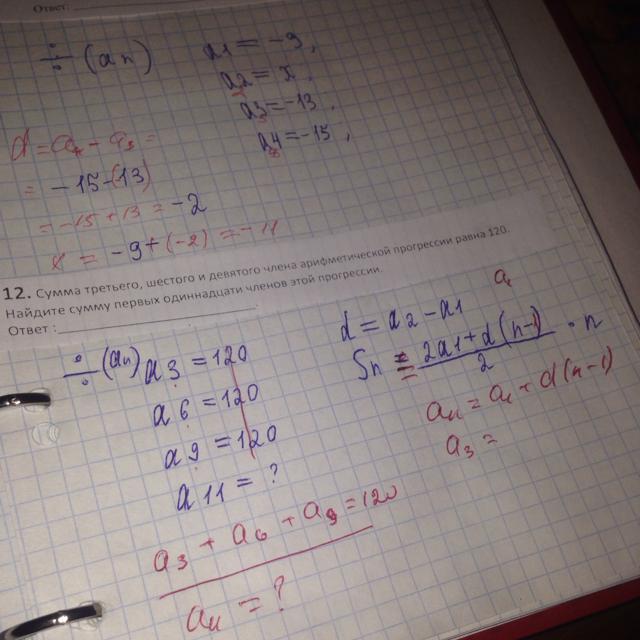 Ответ:
÷ (an) a1 = -9,
a2 = x,
a3 = -13,
a4 = -15,
d = a4 - a3 =
= -15-(13)
= -15 + 13 = -2
x = -9+(-2) = -11
12. Сумма третьего, шестого и девятого члена арифметической прогрессии равна 120.
Найдите сумму первых одиннадцати членов этой прогрессии.
Ответ:
÷ (an) a3 = 120
a6 = 120
a9 = 120
a11 = ?
a3 + a6 + a9 = 120
a11 = ?
d = a2 - a1
Sn = (2a1 + d(n-1))/2 · n
an = a1 + d(n-1)
a3 =